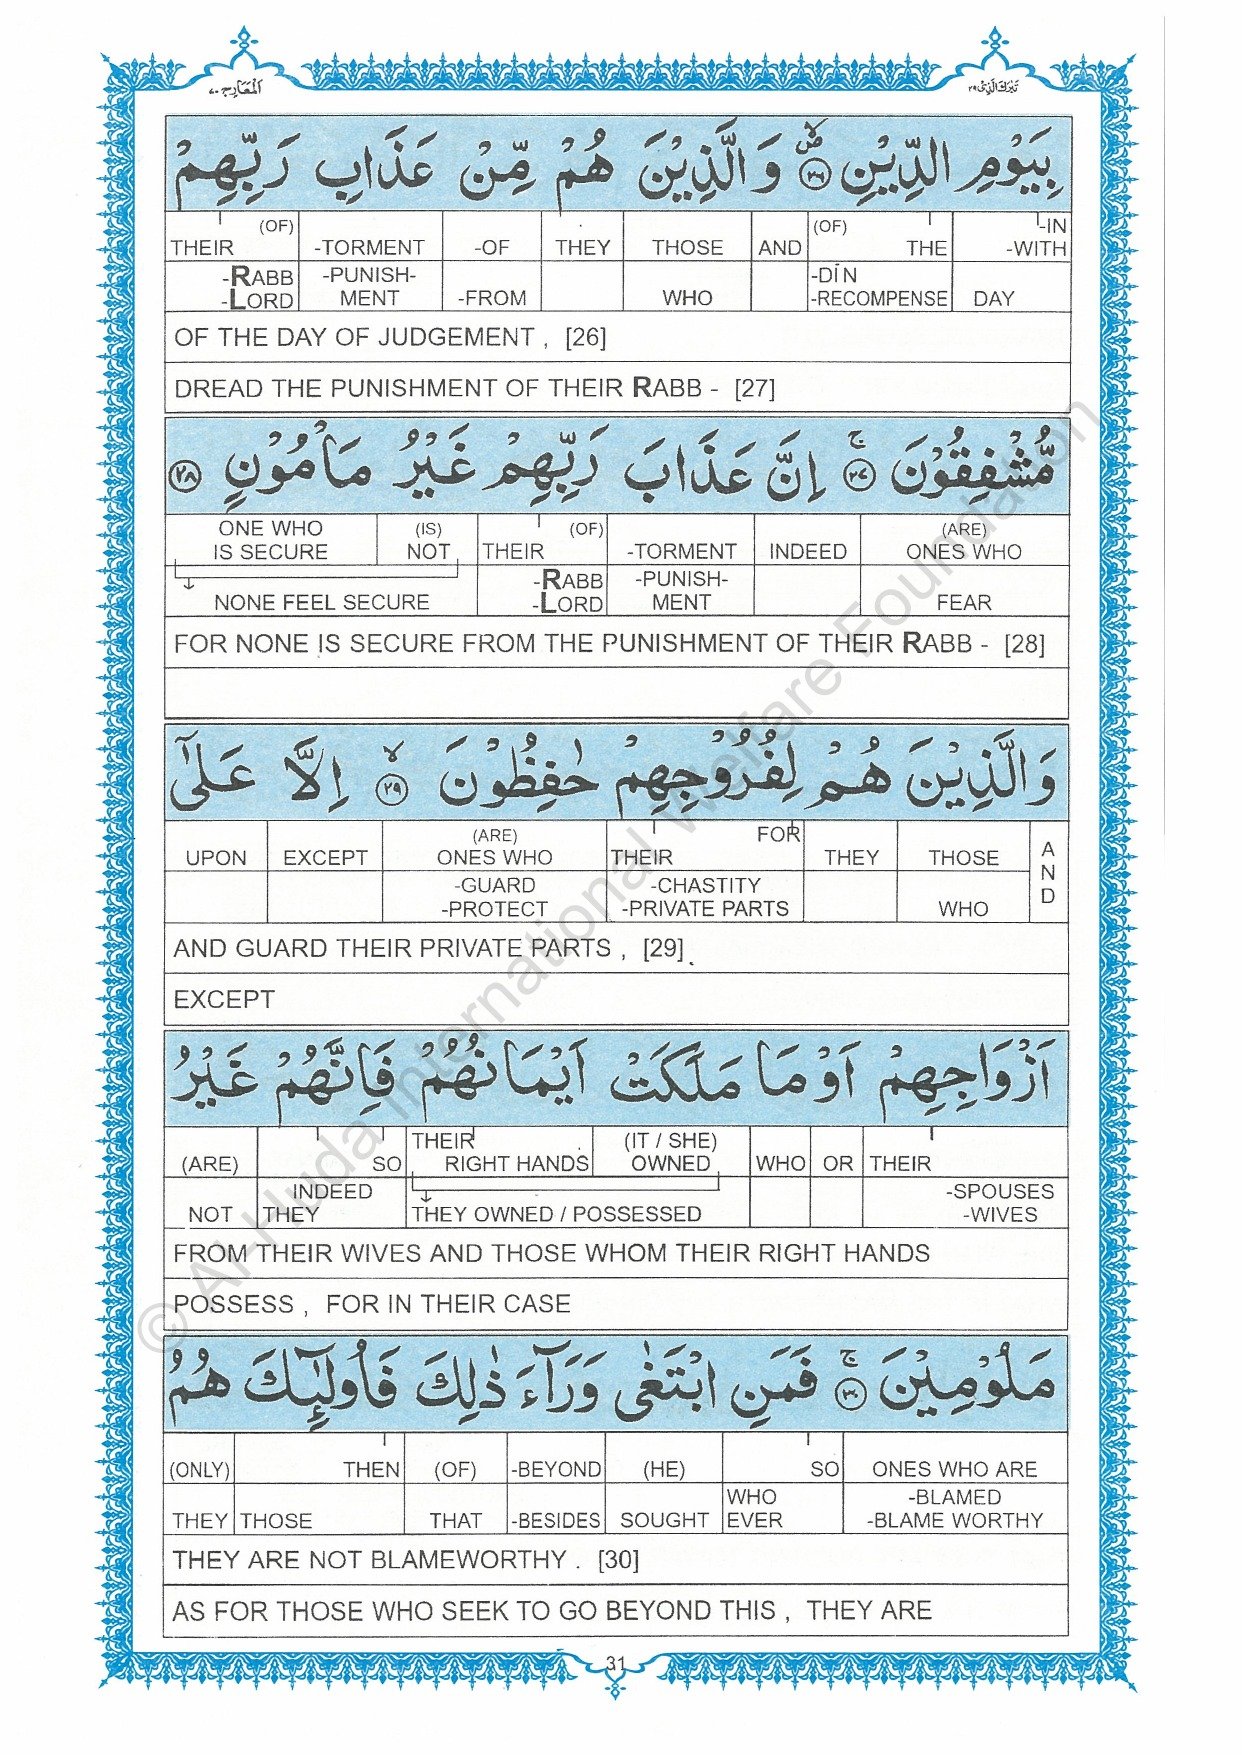 اَلْمَعَارِج ٧٠
تَبٰرَكَ الَّذِیْ ٢٩
بِیَوْمِ الدِّیْنِ ﴿٢٦﴾ وَ الَّذِیْنَ هُمْ مِّنْ عَذَابِ رَبِّهِمْ
THEIR (OF) -TORMENT -OF THEY THOSE AND (OF) THE -IN -WITH
-RABB -LORD -PUNISH-MENT -FROM WHO -DĪN -RECOMPENSE DAY
OF THE DAY OF JUDGEMENT , [26]
DREAD THE PUNISHMENT OF THEIR RABB - [27]
مُّشْفِقُوْنَ ﴿٢٧﴾ اِنَّ عَذَابَ رَبِّهِمْ غَیْرُ مَاْمُوْنٍ ﴿٢٨﴾
ONE WHO IS SECURE (IS) NOT THEIR (OF) -TORMENT INDEED (ARE) ONES WHO
NONE FEEL SECURE -RABB -LORD -PUNISH-MENT FEAR
FOR NONE IS SECURE FROM THE PUNISHMENT OF THEIR RABB - [28]
وَ الَّذِیْنَ هُمْ لِفُرُوْجِهِمْ حٰفِظُوْنَ ﴿٢٩﴾ اِلَّا عَلٰۤی
UPON EXCEPT (ARE) ONES WHO THEIR FOR THEY THOSE AND
-GUARD -PROTECT -CHASTITY -PRIVATE PARTS WHO
AND GUARD THEIR PRIVATE PARTS , [29]
EXCEPT
اَزْوَاجِهِمْ اَوْ مَا مَلَكَتْ اَیْمَانُهُمْ فَاِنَّهُمْ غَیْرُ
(ARE) SO THEIR RIGHT HANDS (IT / SHE) OWNED WHO OR THEIR
NOT INDEED THEY THEY OWNED / POSSESSED -SPOUSES -WIVES
FROM THEIR WIVES AND THOSE WHOM THEIR RIGHT HANDS
POSSESS , FOR IN THEIR CASE
مَلُوْمِیْنَ ﴿٣٠﴾ فَمَنِ ابْتَغٰی وَرَآءَ ذٰلِكَ فَاُولٰٓئِكَ هُمُ
(ONLY) THEN (OF) -BEYOND (HE) SO ONES WHO ARE
THEY THOSE THAT -BESIDES SOUGHT WHO EVER -BLAMED -BLAME WORTHY
THEY ARE NOT BLAMEWORTHY . [30]
AS FOR THOSE WHO SEEK TO GO BEYOND THIS , THEY ARE
31
© Al-Huda International Welfare Foundation